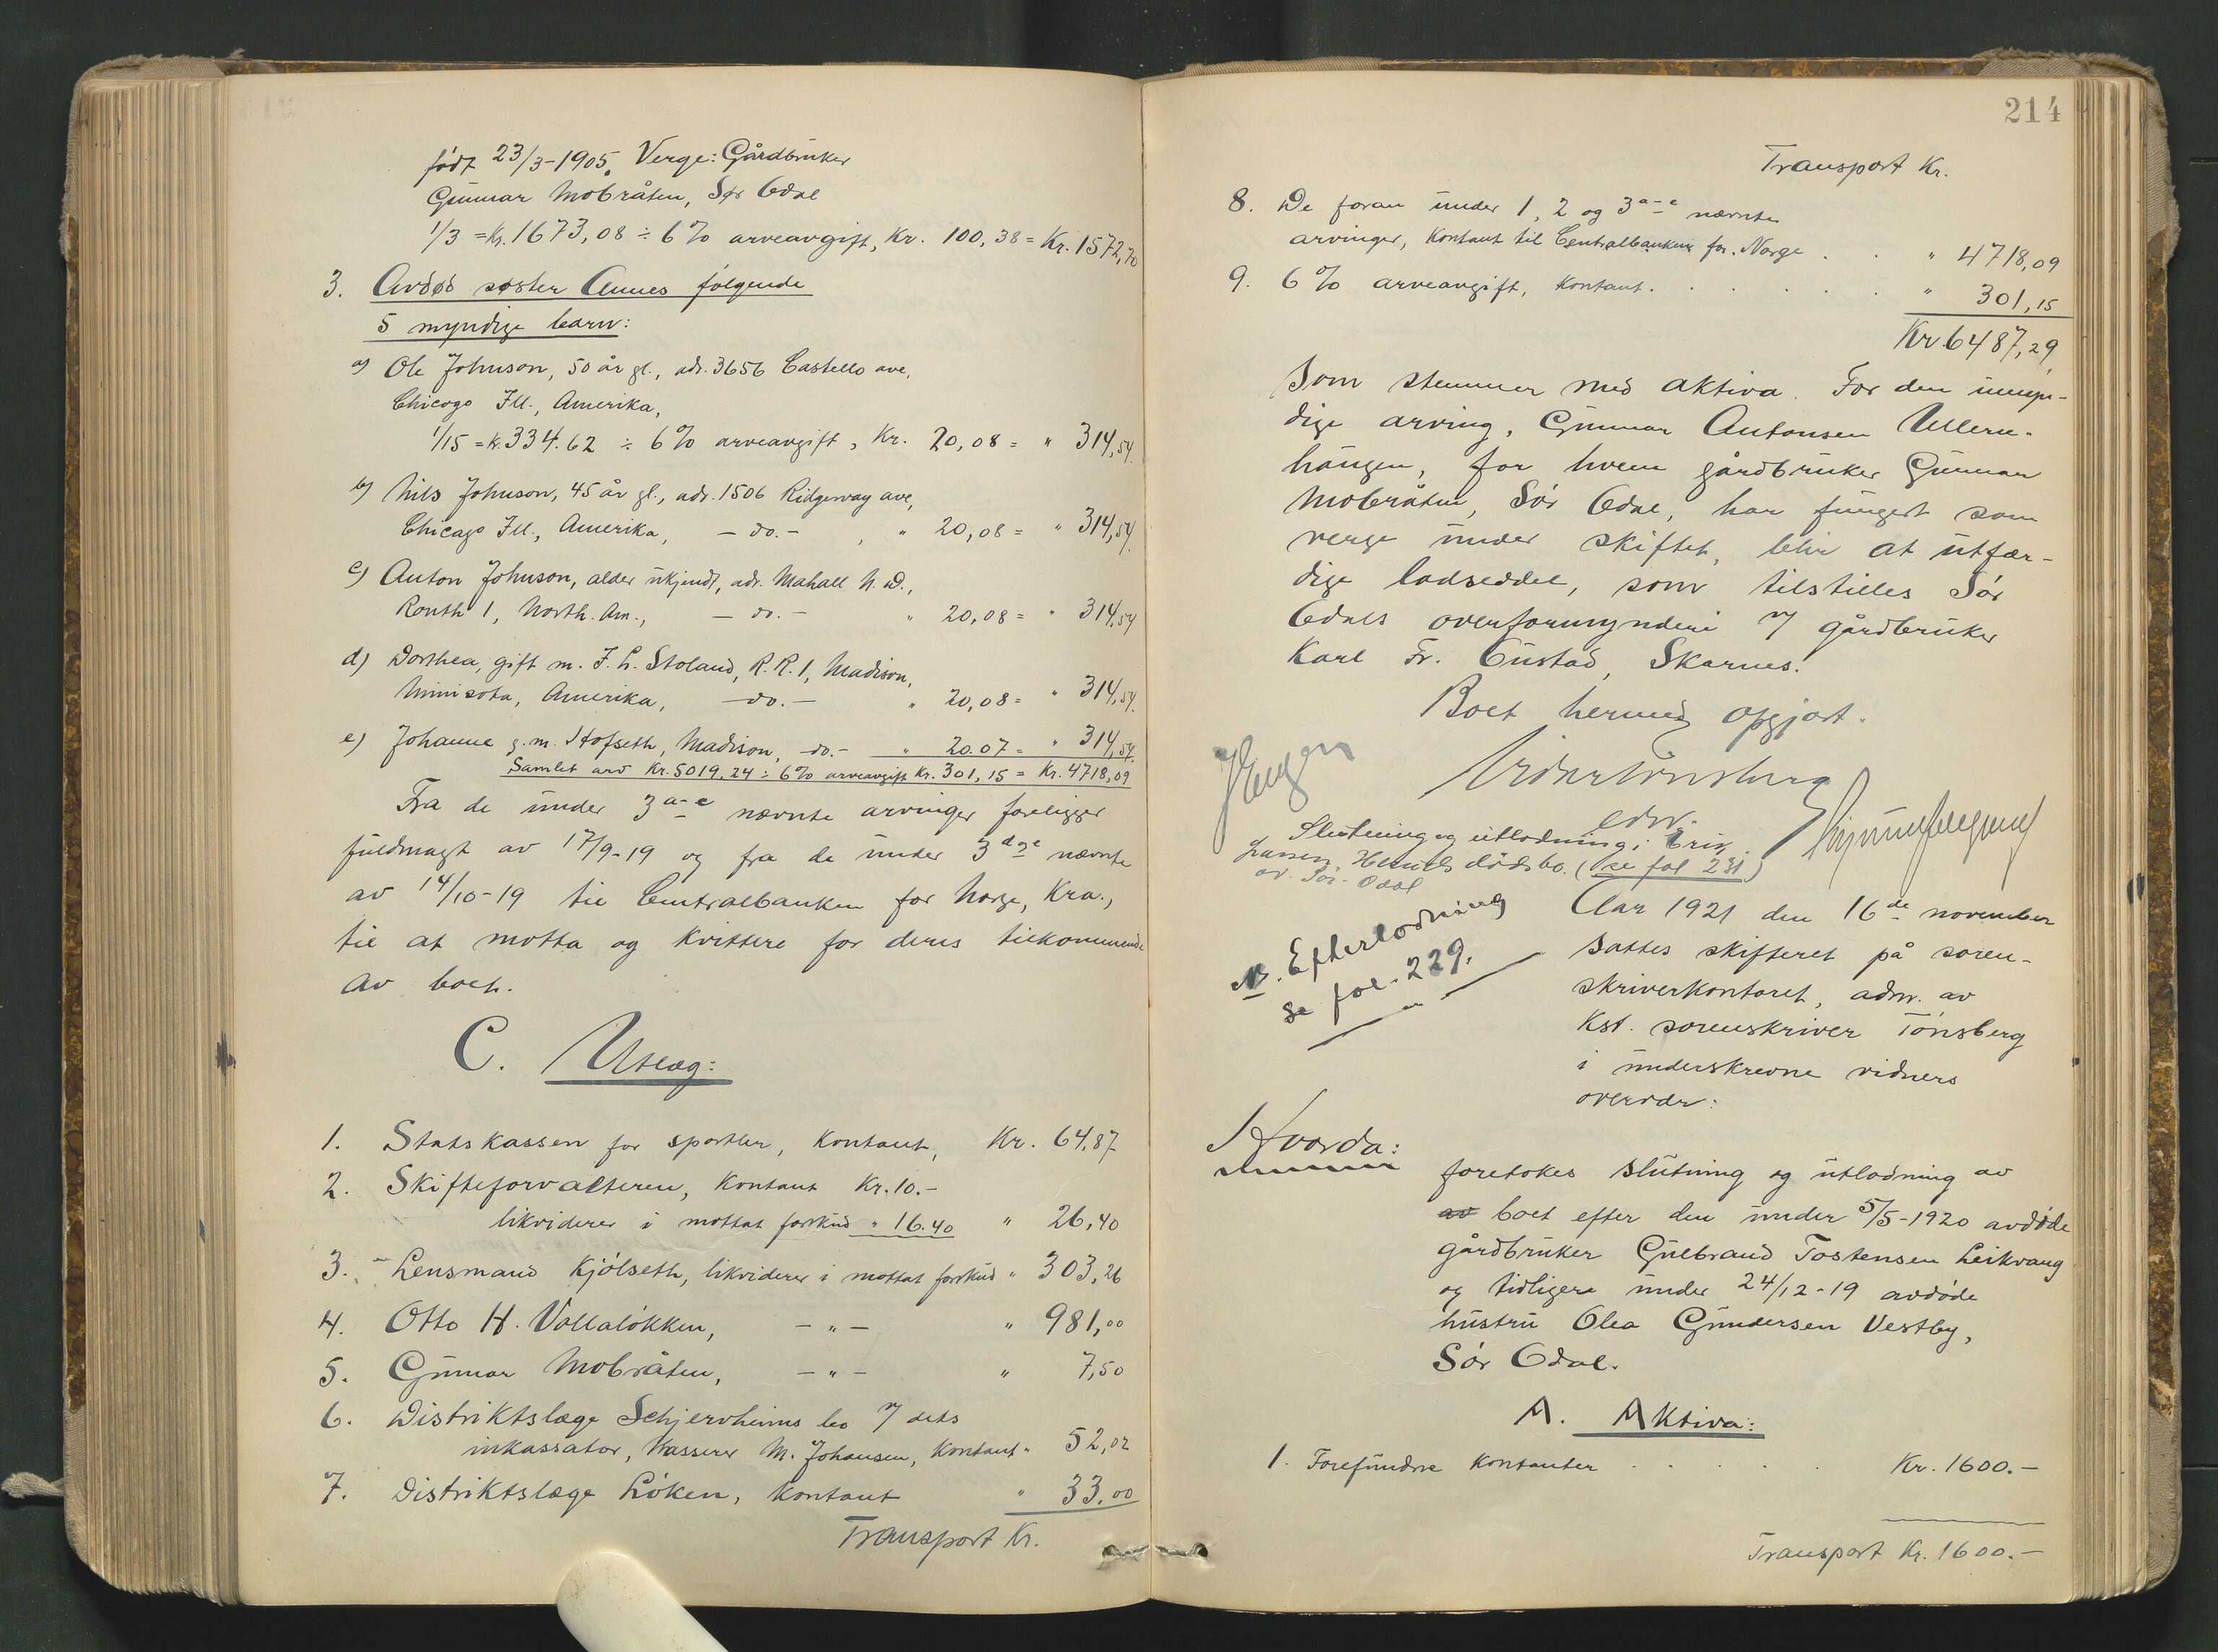 født 23/3-1905. Verge: Gårdbruker
Gunnar Mobråten, Sør Odal
1/3 = Kr. 1673,08 ÷ 6% arveavgift, Kr. 100,38 = Kr. 1572,70
3. Avdød søster Annes følgende
5 myndige barn:
a) Ole Johnson, 50 år gl., adr. 3656 Castello ave,
Chicago Ill., Amerika,
1/15 = Kr. 334.62 ÷ 6% arveavgift, Kr. 20,08 = " 314,54
b) Nils Johnson, 45 år gl., adr. 1506 Ridgeway ave,
Chicago Ill., Amerika, - do. - , " 20,08 = " 314,54
c) Anton Johnson, alder ukjendt, adr. Mahall N. D.,
Routh 1, North. Am., - do. - " 20,08 = " 314,54
d) Dorthea, gift m. J. L. Stoland, R. R. 1, Madison,
Minisota, Amerika, - do. - " 20,08 = " 314,54
e) Johanne g. m. Hofseth, Madison, - do. - " 20.07 = " 314,54
Samlet arv Kr. 5019.24 ÷ 6% arveavgift Kr. 301,15 = Kr. 4718,09
Fra de under 3 a-e nævnte arvinger foreligger
fuldmagt av 17/9-19 og fra de under 3 d og e nævnte
av 14/10-19 til Centralbanken for Norge, Kra.,
til at motta og kvittere for deres tilkommende
av boet.
C. Utlæg:
1. Statskassen for sportler, kontant, Kr. 64.87
2. Skifteforvalteren, kontant Kr. 10.-
likviderer i mottat forskud " 16.40 " 26,40
3. Lensmand Kjölseth, likviderer i mottat forskud " 303,26
4. Otto H. Vollalökken, - " - " 981,00
5. Gunnar Mobråten, - " - " 7,50
6. Distriktslæge Schjervheims bo v/ dets
inkassator, kasserer M. Johansen, kontant " 52,02
7. Distriktslæge Löken, kontant " 33,00
Transport Kr.
214
Transport Kr.
8. De foran under 1, 2 og 3 a-e nævnte
arvinger, kontant til Centralbanken for Norge . . " 4718,09
9. 6% arveavgift, kontant . . . . . . " 301,15
Kr. 6487,29
som stemmer med aktiva. For den umyn-
dige arving, Gunnar Antonsen Ullern-
haugen, for hvem gårdbruker Gunnar
Mobråten, Sör Odal, har fungert som
verge under skiftet, blir at utfær-
dige lodseddel, som tilstilles Sör
Odals overformynderi v/ gårdbruker
Karl Fr. Gustad, Skarnes.
Boet hermed opgjort.
Vidar Tönsberg
edv.
Slutning og utlodning i Erik
Larsen Henuls dödsbo. (se fol 231)
av Sör-Odal
NB. Efterlodning
se fol. 229.
Aar 1921 den 16de november
sattes skifteret på soren-
skriverkontoret, adm. av
Kst. sorenskriver Tönsberg
i underskrevne vidners
overvær:
Hvorda:
foretokes slutning og utlodning av
av boet efter den under 5/5-1920 avdöde
gårdbruker Gulbrand Tostensen Leikvang
og tidligere under 24/12-19 avdöde
hustru Olea Gundersen Vestby,
Sör Odal.
A. Aktiva:
1. Forefundne kontanter . . . . Kr. 1600.-
Transport Kr. 1600.-